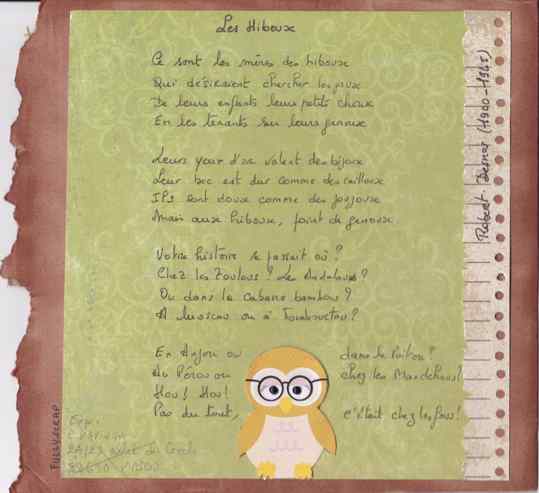 Les Hiboux
Ce sont les mères des hiboux
Qui désiraient chercher les poux
De leurs enfants leurs petits choux
En les tenants sur leurs genoux
Leurs yeux d'or valent des bijoux
Leur bec est dur comme des cailloux
Ils sont doux comme des joujoux
Mais aux hiboux, point de genoux.
Votre histoire se passait où ?
Chez les Zoulous ? Les Andalous ?
Ou dans la cabane bambou ?
A Moscou ou à Tombouctou ?
En Anjou ou dans le Poitou ?
Au Pérou ou chez les Mandchous ?
Hou ! Hou !
Pas du tout, c'était chez les fous !
Robert Desnos (1900-1945)
FULLYSCRAP